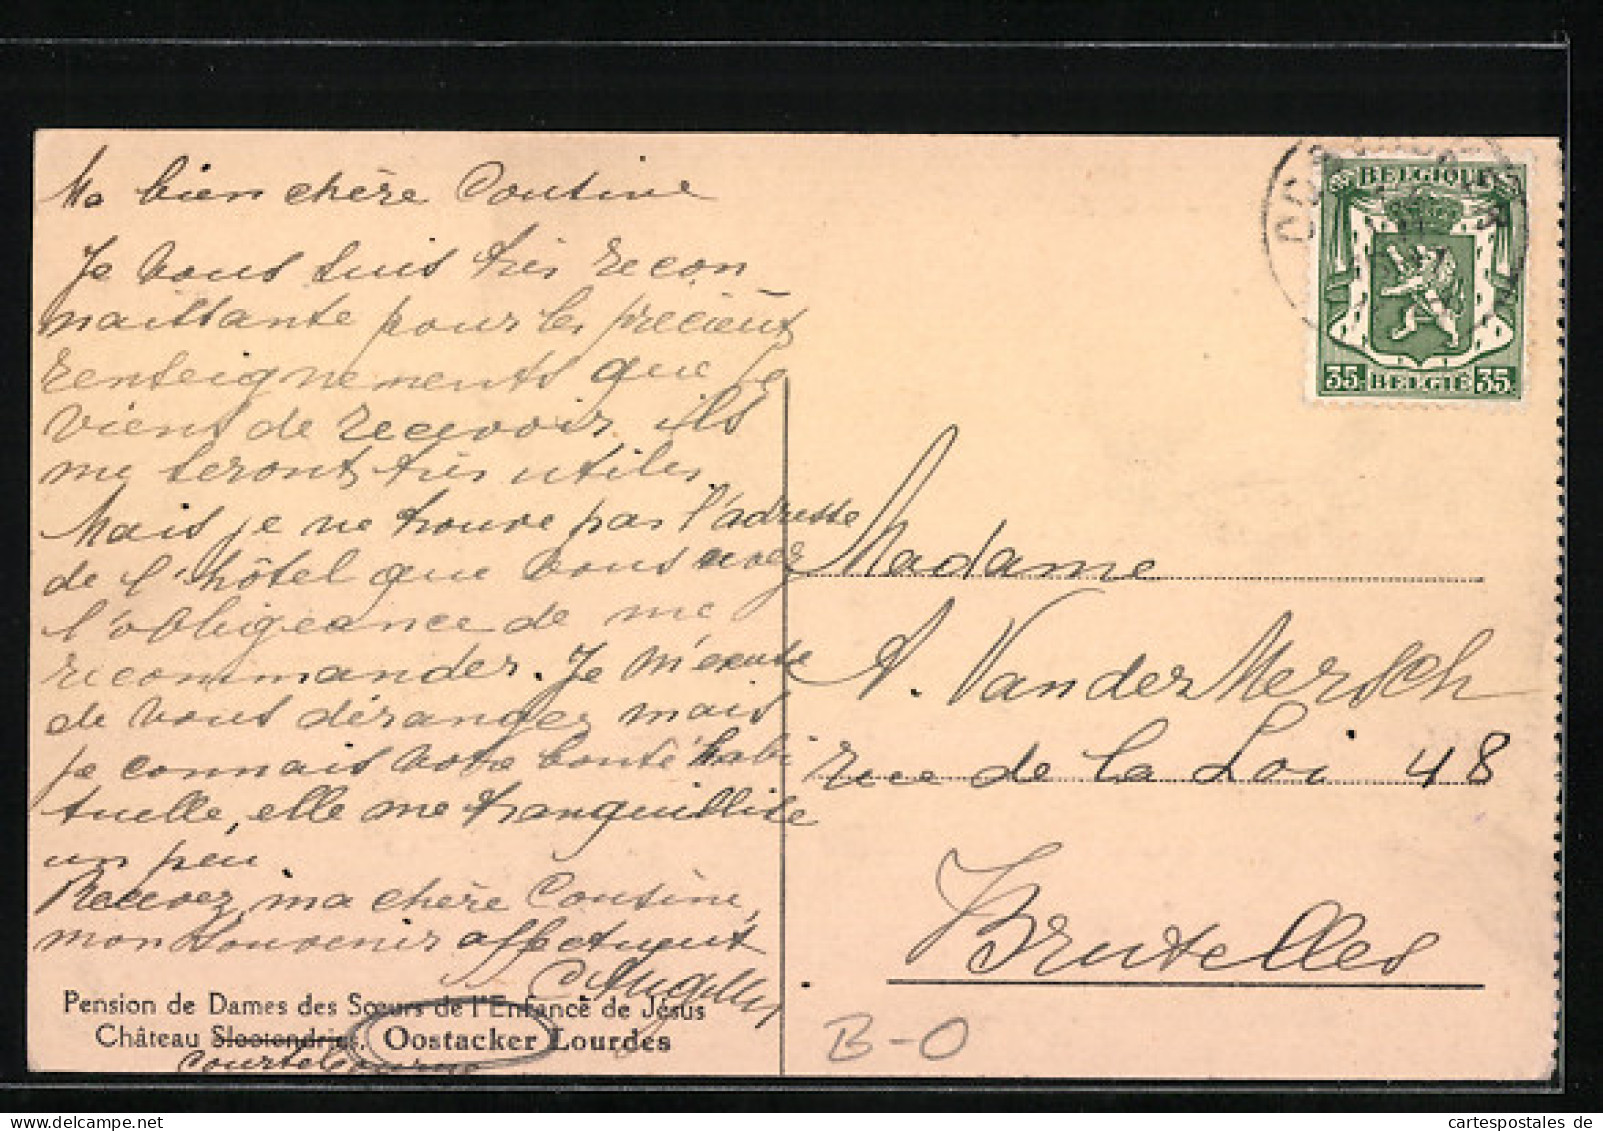 Ma bien chère Cousine
Je vous suis très recon
naissante pour les précieux
renseignements que je
viens de recevoir, ils
me seront très utiles.
Mais je ne trouve pas l'adresse
de l'hôtel que vous avez
l'obligeance de me
recommander. Je m'excuse
de vous déranger mais
je connais votre bonté habi
tuelle, elle me tranquillise
un peu.
Recevez, ma chère Cousine,
mon souvenir affectueux
Pension de Dames des Sœurs de l'Enfance de Jésus
Château Slootendries, Oostacker Lourdes
BELGIQUE
35. BELGIË 35.
Madame
A. VanderMersch
rue de la Loi 48
Bruxelles
B-O
cartespostales de